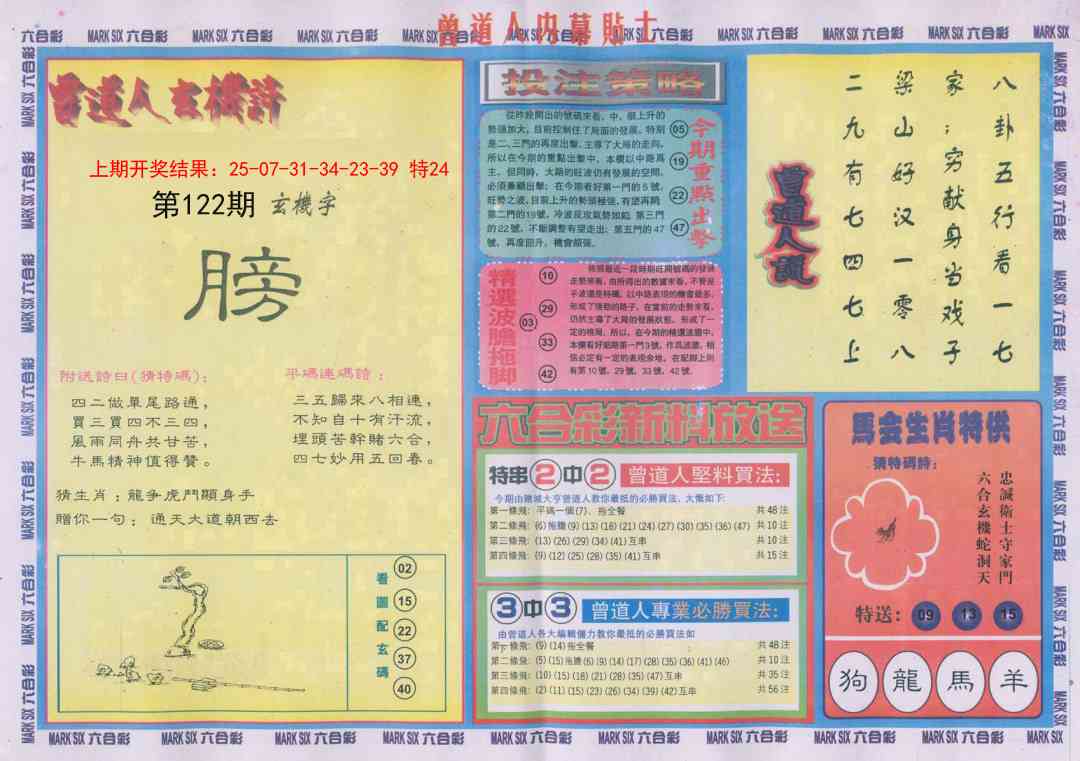 曾道人内幕貼士
MARK SIX 六合彩
曾道人玄機詩
上期开奖结果：25-07-31-34-23-39 特24
第122期 玄機字
膀
附送詩曰(猜特碼)：
四二做單尾路通，
買三買四不三四，
風雨同舟共甘苦，
牛馬精神值得贊。
平碼連碼詩：
三五歸來八相連，
不知自十有汗流，
埋頭苦幹賭六合，
四七妙用五回春。
猜生肖：龍爭虎鬥顯身手
贈你一句：通天大道朝西去
看圖配玄碼
02
15
22
37
40
投注策略
從昨段開出的號碼來看，中，個上升的
勢頭加大，目前控制住了局面的發展，特別
是二、三門的再度出擊，主導了大局的走向，
所以在今期的重點出擊中，本欄以中路爲
主，但同時，大路的旺波仍有發展的空間，
必須兼顧出擊；在今期看好第一門的５號，
旺勢之波，目前上升的勢頭極強，有望再開，
第二門的19號，冷波反攻氣勢如虹，第三門
的22號，不斷調整有望走出；第五門的47
號，再度回升，機會頗強。
05
19
22
47
今期重點出擊
精選波膽拖脚
03
10
29
33
42
根據最近一段時期旺開號碼的發展
走勢來看，由所得出的數據來看，不管是
平波還是特碼，以中路表現的機會最多，
形成了強勁的路子，在當前的走勢來看，
仍然主導了大局的發展狀態，形成了一
定的格局，所以，在今期的精選波膽中，
本欄看好細路第一門3號，作爲波膽，相
信必定有一定的表現余地，在配脚上則
有第10號、29號、33號、42號。
曾道人說
八卦五行看一七
家；穷献身当戏子
梁山好汉一零八
二九有七四七上
六合彩新料放送
特串2中2 曾道人堅料買法：
今期由賭城大亨曾道人教你最抵的必勝買法，大慨如下：
第一條飛：平碼一個(7)，拖全餐 共48注
第二條飛：(6)拖膽(9)(13)(18)(21)(24)(27)(30)(35)(36)(47) 共10注
第三條飛：(13)(26)(29)(34)(41)互串 共10注
第四條飛：(9)(12)(25)(28)(35)(41)互串 共15注
3中3 曾道人專業必勝買法：
由曾道人各大編輯僵力教你最抵的必勝買法如
第一條飛：(9)(14)拖全餐 共48注
第二條飛：(5)(15)拖膽(6)(9)(14)(17)(28)(35)(36)(41)(46) 共10注
第三條飛：(10)(15)(18)(21)(28)(35)(47)互串 共35注
第四條飛：(2)(11)(15)(23)(26)(34)(39)(42)互串 共56注
馬会生肖特供
猜特碼詩：
忠誠衛士守家門
六合玄機蛇洞天
特送：09 13 15
狗 龍 馬 羊
MARK SIX 六合彩